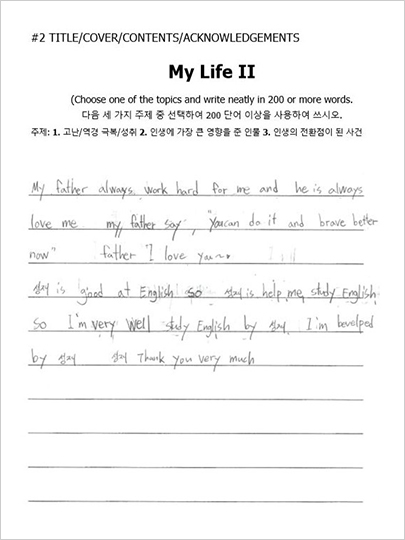 #2 TITLE/COVER/CONTENTS/ACKNOWLEDGEMENTS
My Life II
(Choose one of the topics and write neatly in 200 or more words.
다음 세 가지 주제 중 선택하여 200 단어 이상을 사용하여 쓰시오.
주제: 1. 고난/역경 극복/성취 2. 인생에 가장 큰 영향을 준 인물 3. 인생의 전환점이 된 사건
My father always work hard for me and he is always
love me my father say, "you can do it and brave better
now" father "I love you~
is good at English so is help me study English
so I'm very well study English by I'm
by Thank you very much